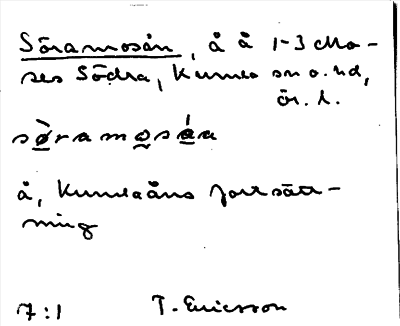 Söramosån, å å 1-3 Mo-
sås Södra, Kumla sn o. hd,
ör. l.
sö̀ramosá̱a
å, Kumlaåns fortsätt-
ning
7:1 T. Ericsson